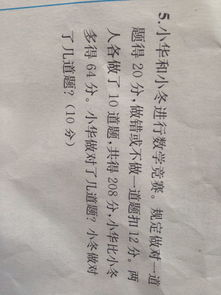 5. 小华和小冬进行数学竞赛。规定做对一道
题得 20 分，做错或不做一道题扣 12 分。两
人各做了 10 道题，共得 208 分，小华比小冬
多得 64 分。小华做对了几道题？小冬做对
了几道题？（10 分）